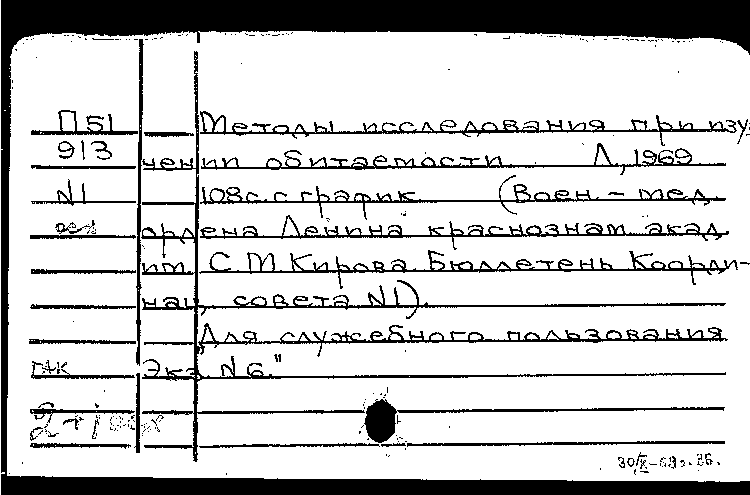 П51 Методы исследования при изу
913 чении обитаемости Л., 1969
N1 108с. с график (Воен.-мед.
ордена Ленина краснознам. акад.
им. С.М. Кирова. Бюллетень Коорди-
нац. совета N1).
"Для служебного пользования
ГАК Экз. N6."
30/X-69г.